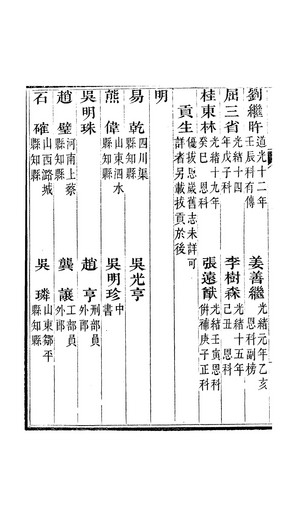 劉繼昨 道光十二年壬辰科有傳 姜善繼 光緒元年乙亥恩科副榜
屈三省 光緒十四年戊子科 李樹森 光緒十五年己丑恩科
桂東林 光緒十九年癸巳恩科 張遠猷 光緒壬寅恩科倂補庚子正科
貢生 優拔恩歲舊志未詳可詳者另載拔貢於後
明
易乾 四川渠縣知縣 吳光亨
熊偉 山東泗水縣知縣 吳明珍 中書
吳明珠 趙亨 刑部員外郎
趙璧 河南上蔡縣知縣 龔讓 工部員外郎
石確 山西潞城縣知縣 吳璘 山東鄒平縣知縣